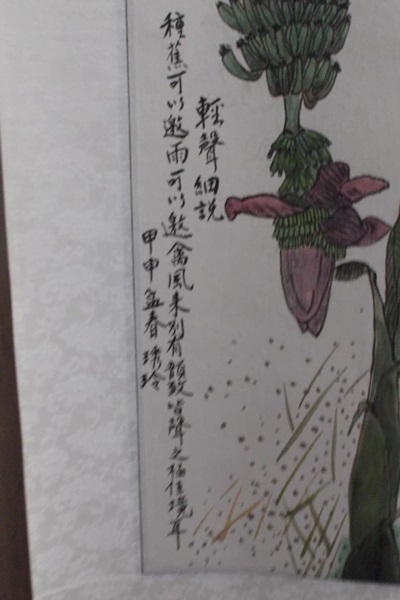 輕聲細說
種蕉可以邀雨可以邀禽風来別有韻致皆聲之極佳境耳
甲申孟春 琇玲